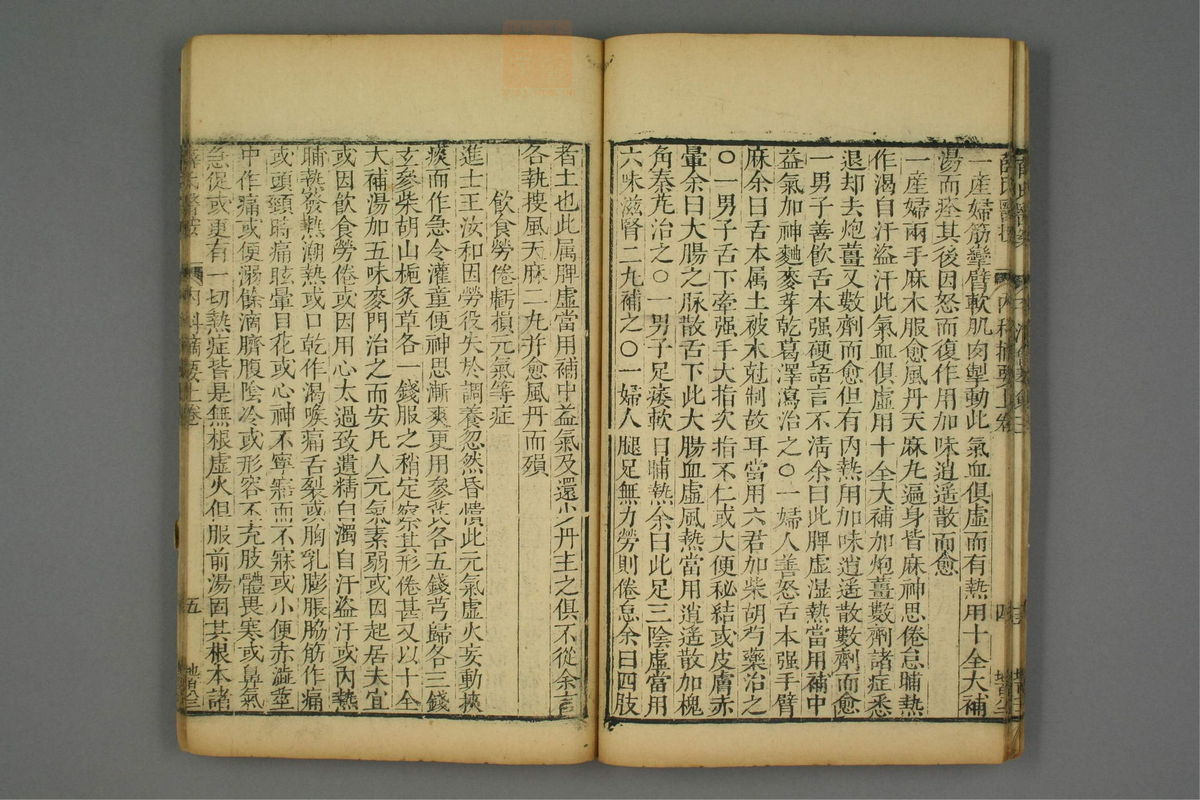 一産婦筋攣臂軟肌肉掣動此氣血俱虛而有熱用十全大補
湯而痊其後因怒而復作用加味逍遙散而愈
一産婦兩手麻木服愈風丹天麻丸遍身皆麻神思倦怠晡熱
作渴自汗盜汗此氣血俱虛用十全大補加炮薑數劑諸症悉
退却去炮薑又數劑而愈但有內熱用加味逍遙散數劑而愈
一男子善飲舌本强硬語言不清余曰此脾虛湿熱當用補中
益氣加神麯麥芽乾葛澤瀉治之〇一婦人善怒舌本强手臂
麻余曰舌本属土被木尅制故耳當用六君加柴胡芍藥治之
〇一男子舌下牽强手大指次指不仁或大便秘結或皮膚赤
暈余曰大腸之脉散舌下此大腸血虛風熱當用逍遙散加槐
角秦艽治之〇一男子足痿軟日晡熱余曰此足三陰虛當用
六味滋腎二丸補之〇一婦人腿足無力勞則倦怠余曰四肢
內科摘要上卷
四
者土也此属脾虛當用補中益氣及還少丹主之俱不從余言
各執搜風天麻二丸并愈風丹而殞
飲食勞倦虧損元氣等症
進士王汝和因勞役失於調養忽然昏憒此元氣虛火妄動挾
痰而作急令灌童便神思漸爽更用參芪各五錢芎歸各三錢
玄參柴胡山梔炙草各一錢服之稍定察其形倦甚又以十全
大補湯加五味麥門治之而安凡人元氣素弱或因起居失宜
或因飲食勞倦或因用心太過致遺精白濁自汗盜汗或內熱
晡熱發熱潮熱或口乾作渴喉痛舌裂或胸乳膨脹脇筋作痛
或頭頸時痛眩暈目花或心神不寧寤而不寐或小便赤澁莖
中作痛或便溺餘滴臍腹陰冷或形容不充肢體畏寒或鼻氣
急促或更有一切熱症皆是無根虛火但服前湯固其根本諸
薛氏醫按
內科摘要上卷
五